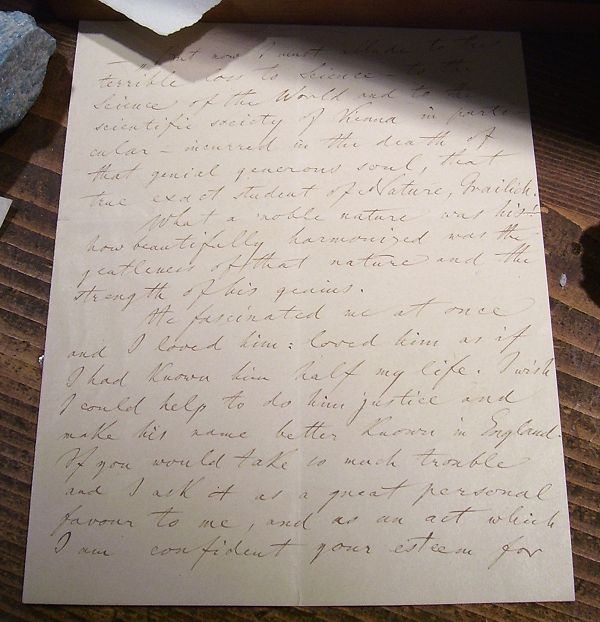 — But now I must allude to the
terrible loss to Science – to the
Science of the World and to the
scientific society of Vienna in parti-
cular – incurred in the death of
that genial generous soul, that
true exact student of Nature, Grailich.
What a noble nature was his!
how beautifully harmonized was the
gentleness of that nature and the
strength of his genius.
He fascinated me at once
and I loved him: loved him as if
I had known him half my life. I wish
I could help to do him justice and
make his name better known in England.
If you would take so much trouble
and I ask it as a great personal
favour to me, and as an act which
I am confident your esteem for